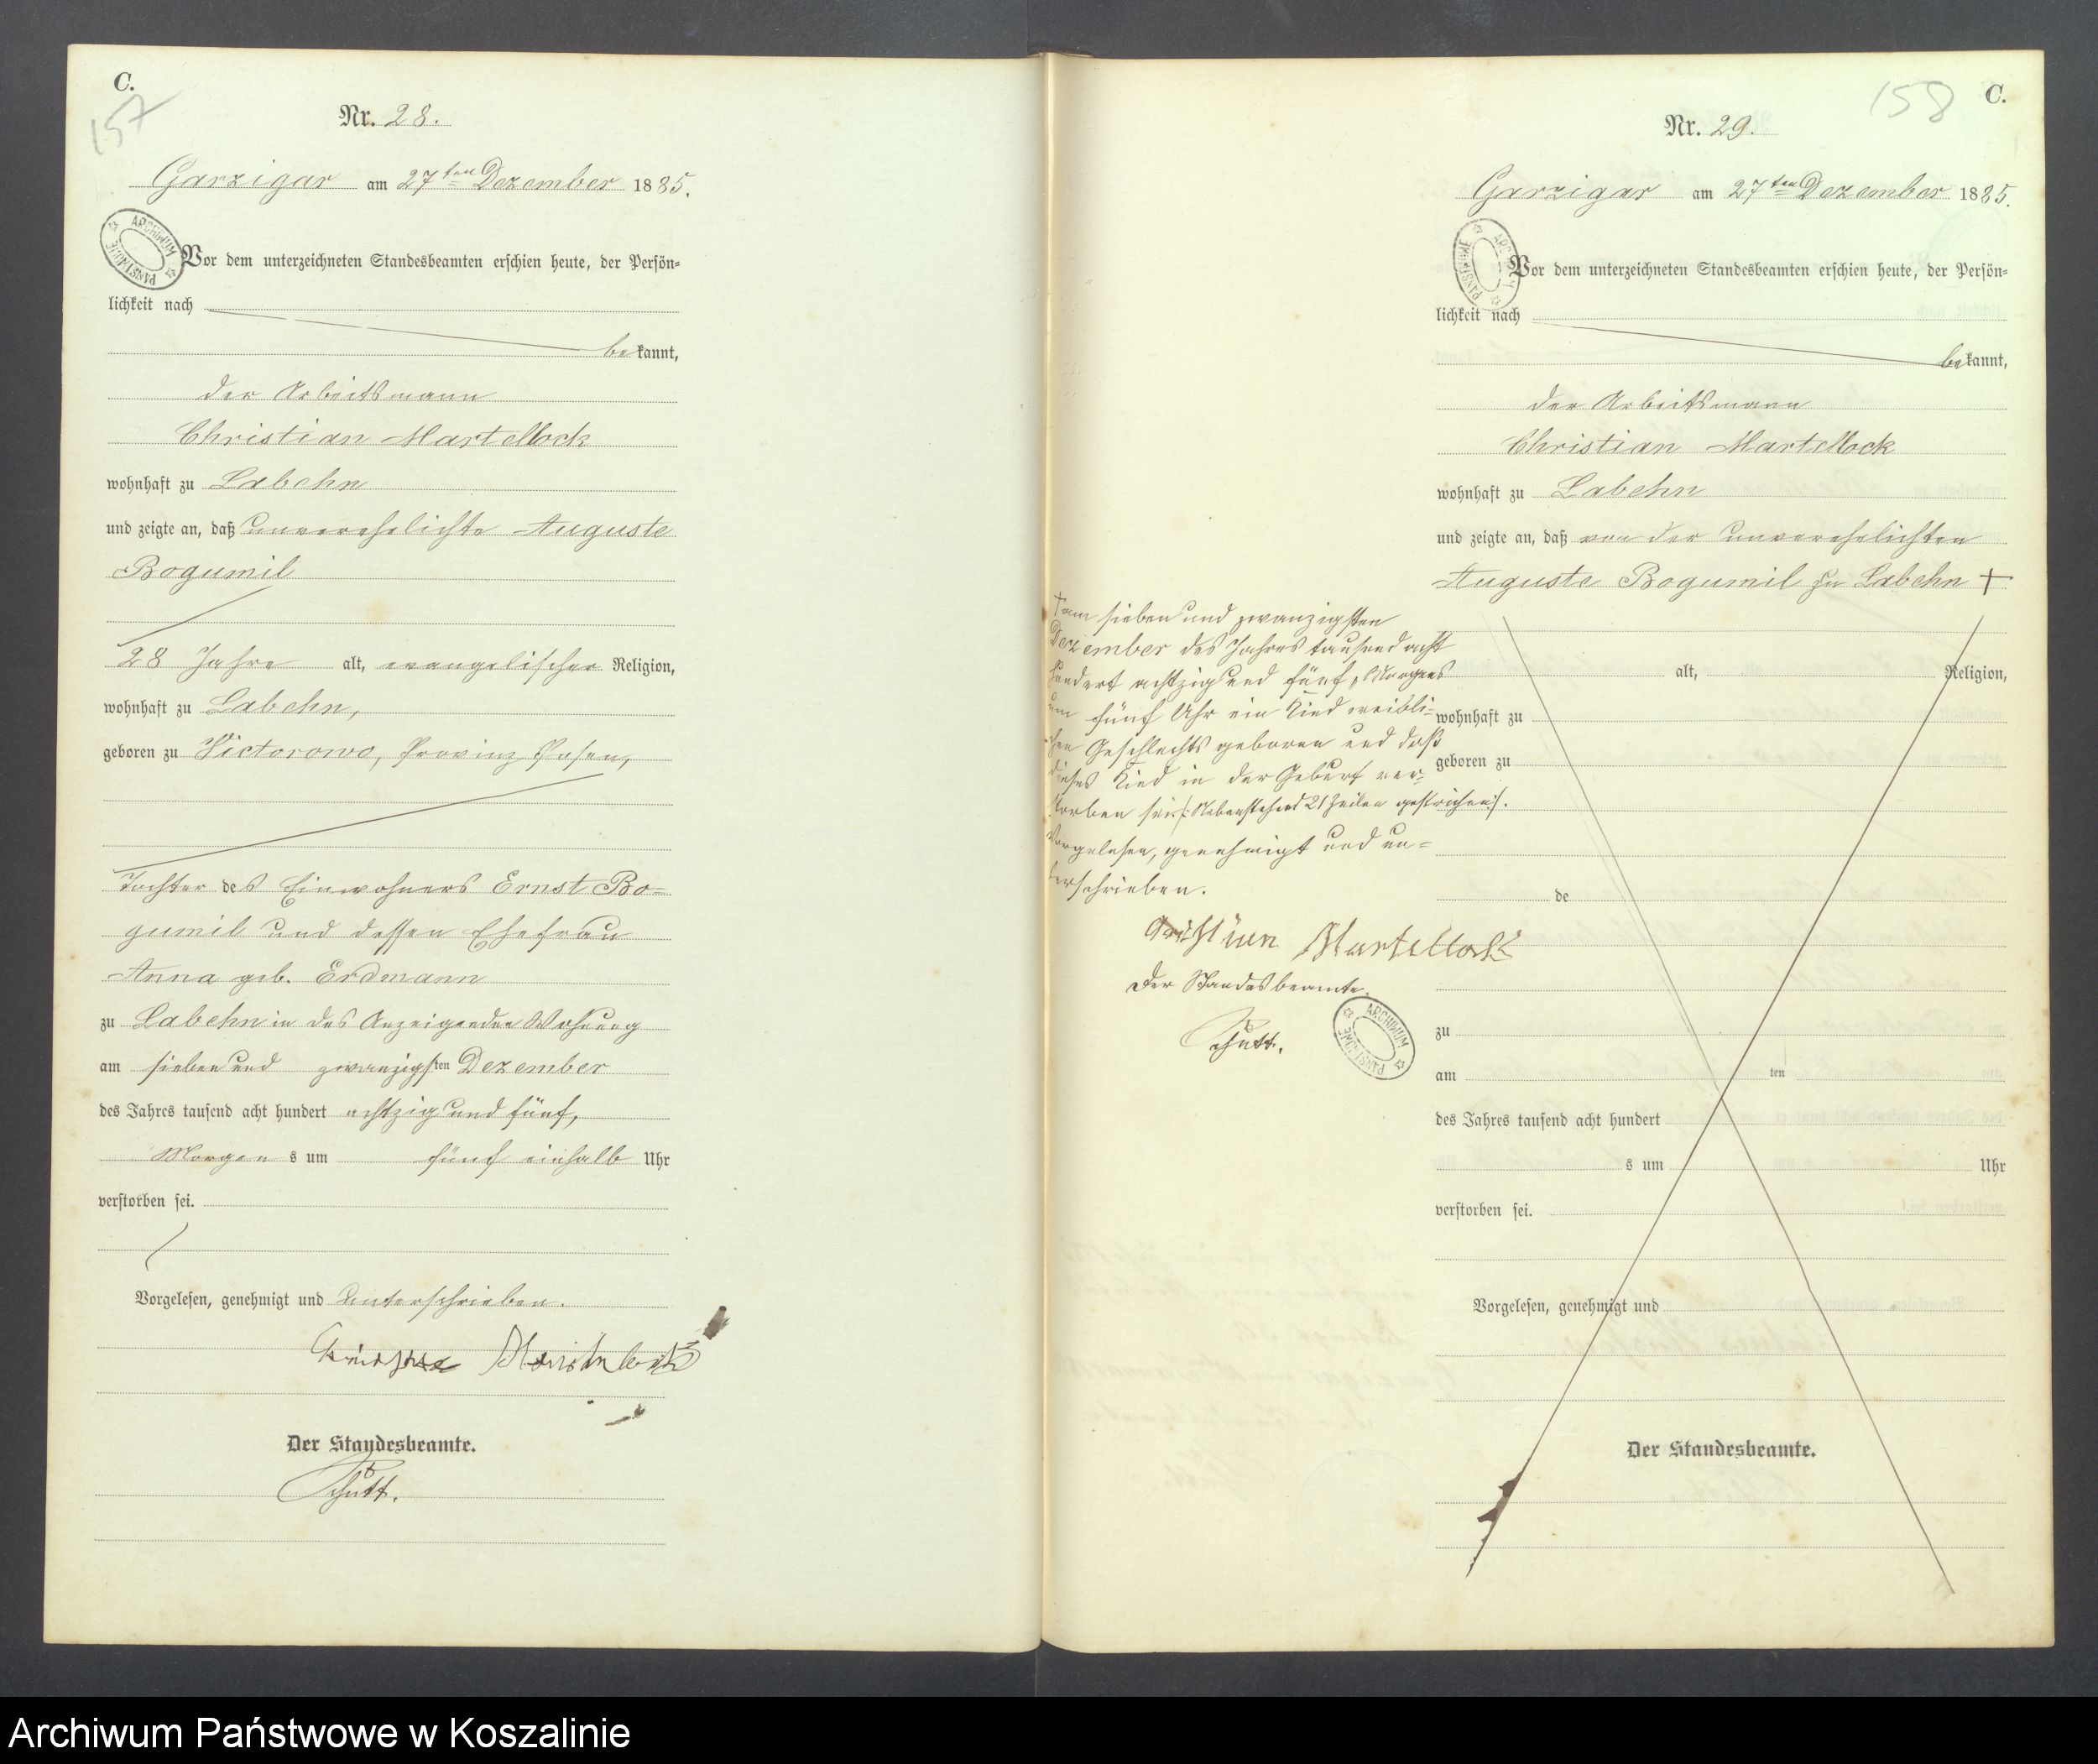 C.
157
Nr. 28.
Garzigar am 27ten Dezember 1885.
ARCHIWUM PAŃSTWOWE
Vor dem unterzeichneten Standesbeamten erschien heute, der Persön-
lichkeit nach
bekannt,
der Arbeitsmann
Christian Martellock
wohnhaft zu Labehn
und zeigte an, daß unverehelichte Auguste
Bogumil
28 Jahre alt, evangelischer Religion,
wohnhaft zu Labehn,
geboren zu Victorowo, Provinz Posen,
Tochter des Einwohners Ernst Bo-
gumil und dessen Ehefrau
Anna geb. Erdmann
zu Labehn in des Anzeigenden Wohnung
am sieben und zwanzigsten Dezember
des Jahres tausend acht hundert achtzig und fünf,
Morgens um fünf einhalb Uhr
verstorben sei.
Vorgelesen, genehmigt und unterschrieben.
Der Standesbeamte.
Schütt.
158
C.
Nr. 29.
Garzigar am 27ten Dezember 1885.
ARCHIWUM PAŃSTWOWE
Vor dem unterzeichneten Standesbeamten erschien heute, der Persön-
lichkeit nach
bekannt,
der Arbeitsmann
Christian Martellock
wohnhaft zu Labehn
und zeigte an, daß von der unverehelichten
Auguste Bogumil zu Labehn +
+ am sieben und zwanzigsten
Dezember des Jahres tausend acht
hundert achtzig und fünf, Morgens
um fünf Uhr ein Kind weibli-
chen Geschlechts geboren und daß
dieses Kind in der Geburt ver-
storben sei. /: Nebenstehend 21 Zeilen gestrichen :/.
Vorgelesen, genehmigt und un-
terschrieben.
Christian Martellock
Der Standesbeamte.
Schütt.
ARCHIWUM PAŃSTWOWE
alt, Religion,
wohnhaft zu
geboren zu
de
zu
am ten
des Jahres tausend acht hundert
s um Uhr
verstorben sei.
Vorgelesen, genehmigt und
Der Standesbeamte.
Archiwum Państwowe w Koszalinie